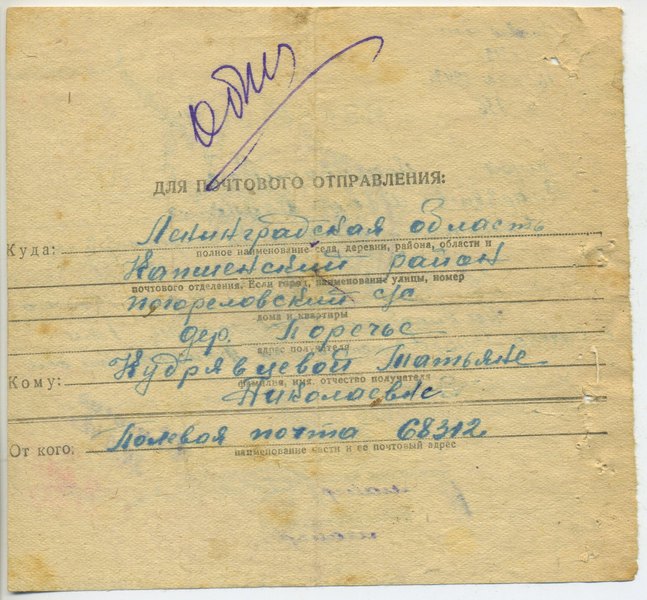 ДЛЯ ПОЧТОВОГО ОТПРАВЛЕНИЯ:
Куда: Ленинградская область
полное наименование села, деревни, района, области и
Капшенский район
почтового отделения. Если город, наименование улицы, номер
погореловский с/а
дома и квартиры
дер. Поречье
адрес получателя
Кому: Кудрявцевой Татьяне
фамилия, имя, отчество получателя
Николаевне
От кого: Полевая почта 68312
наименование части и ее почтовый адрес